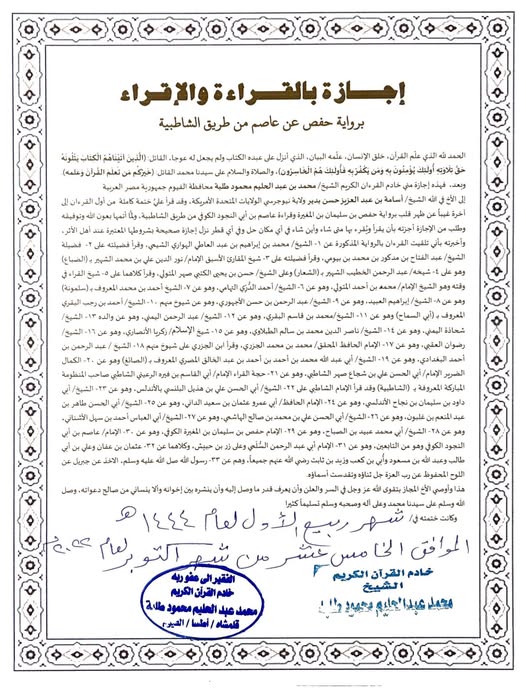 إجازة بالقراءة والإقراء
برواية حفص عن عاصم من طريق الشاطبية
الحمد لله الذي علّم القرآن، خلق الإنسان، علّمه البيان، الذي أنزل على عبده الكتاب ولم يجعل له عوجا، القائل: (الَّذِينَ آتَيْنَاهُمُ الْكِتَابَ يَتْلُونَهُ
حَقَّ تِلَاوَتِهِ أُولَئِكَ يُؤْمِنُونَ بِهِ وَمَن يَكْفُرْ بِهِ فَأُولَئِكَ هُمُ الْخَاسِرُونَ)، والصلاة والسلام على سيدنا محمد القائل: (خَيْرُكُمْ مَن تَعَلَّمَ القُرْآنَ وعَلَّمه)
وبعد، فهذه إجازة مني خادم القرءان الكريم الشيخ/ محمد بن عبد الحليم محمود طلبة محافظة الفيوم جمهورية مصر العربية
إلى الأخ في الله الشيخ/ أسامة بن عبد العزيز حسن بدير ولاية نيوجرسي الولايات المتحدة الأمريكة، وقد قرأ عليّ ختمة كاملة من أول القرءان إلى
آخره غيباً عن ظهر قلب برواية حفص بن سليمان بن المغيرة وقراءة عاصم بن أبي النجود الكوفي من طريق الشاطبية. ولمّا أتمها بعون الله وتوفيقه
وطلب من الإجازة أجزته بأن يقرأ ويُقرء بها متى شاء وأين شاء في أي مكان حل وفي أي قطر نزل إجازة صحيحة بشروطها المعتبرة عند أهل الأثر.
وأخبرته بأني تلقيت القرءان بالرواية المذكورة عن ١- الشيخ/ محمد بن إبراهيم بن عبد العاطي الهواري الشيخي، وقرأ فضيلته على ٢- فضيلة
الشيخ/ عبد الفتاح بن مدكور بن محمد بن بيومي، وقرأ فضيلته على ٣- شيخ المقارئ الأسبق الإمام/ نور الدين علي بن محمد الشهير بـ (الضباع)
وهو على ٤- شيخه/ عبد الرحمن الخطيب الشهير بـ (الشعار) وعلى الشيخ/ حسن بن يحيى الكتبي صهر المتولي، وقرأ كلاهما على ٥- شيخ القراء في
وقته وهو الشيخ الإمام/ محمد بن أحمد المتولي، وهو على ٦- الشيخ/ أحمد الدُّري التهامي، وهو عن ٧- الشيخ/ أحمد بن محمد المعروف بـ (سلمونة)
وهو عن ٨- الشيخ/ إبراهيم العبيد، وهو عن ٩- الشيخ/ عبد الرحمن بن حسن الأجهوري، وهو عن شيوخ منهم ١٠- الشيخ/ أحمد بن رجب البقري
المعروف بـ (أبي السماح) وهو عن ١١- الشيخ/ محمد بن قاسم البقري، وهو عن ١٢- الشيخ/ عبد الرحمن اليمني، وهو عن والده ١٣- الشيخ/
شحاذة اليمني، وهو عن ١٤- الشيخ/ ناصر الدين محمد بن سالم الطبلاوي، وهو عن ١٥- شيخ الإسلام/ زكريا الأنصاري، وهو عن ١٦- الشيخ/
رضوان العقبي، وهو عن ١٧- الإمام الحافظ المحقق/ محمد بن محمد الجزري، وقرأ ابن الجزري على شيوخ منهم ١٨- الشيخ/ عبد الرحمن بن
أحمد البغدادي، وهو عن ١٩- الشيخ/ أبي عبد الله محمد بن أحمد بن عبد الخالق المصري المعروف بـ (الصائغ) وهو عن ٢٠- الكمال
الضرير الإمام/ أبي الحسن علي بن شجاع صهر الشاطبي، وهو عن ٢١- حجة القراء الإمام/ أبي القاسم بن فيره الرعيني الشاطبي صاحب المنظومة
المباركة المعروفة بـ (الشاطبية) وقد قرأ الإمام الشاطبي على ٢٢- الشيخ/ أبي الحسن علي بن هذيل البلنسي بالأندلس، وهو عن ٢٣- الشيخ/ أبي
داود بن سليمان بن نجاح الأندلسي، وهو عن ٢٤- الإمام الحافظ/ أبي عمرو عثمان بن سعيد الداني، وهو عن ٢٥- الشيخ/ أبي الحسن طاهر بن
عبد المنعم بن غلبون، وهو عن ٢٦- الشيخ/ أبي الحسن علي بن محمد بن صالح الهاشمي، وهو عن ٢٧- الشيخ/ أبي العباس أحمد بن سهل الأشناني،
وهو عن ٢٨- الشيخ/ أبي محمد عبيد بن الصباح، وهو عن ٢٩- الإمام/ حفص بن سليمان بن المغيرة الكوفي، وهو عن ٣٠- الإمام/ عاصم بن أبي
النجود الكوفي وهو من التابعين، وهو عن ٣١- الإمام/ أبي عبد الرحمن السُّلمي وعلى زر بن حبيش، وكلاهما عن ٣٢- عثمان بن عفان وعلي بن أبي
طالب وعبد الله بن مسعود وأُبي بن كعب وزيد بن ثابت رضي الله عنهم جميعاً، وهم عن ٣٣- رسول الله صل الله عليه وسلم، الآخذ عن جبريل عن
اللوح المحفوظ عن رب العزة جل ثناؤه وتقدست أسماؤه.
هذا وأوصي الأخ المجاز بتقوى الله عز وجل في السر والعلن وأن يعرف قدر ما وصل إليه وأن ينشره بين إخوانه وألا ينساني من صالح دعواته، وصل
الله وسلم على سيدنا محمد وعلى آله وصحبه وسلم تسليماً كثيرا
وكانت ختمته في/ شهر ربيع الأول لعام ١٤٤٤ هـ
الموافق الخامس عشر من شهر أكتوبر لعام ٢٠٢٢م
خادم القرآن الكريم
الشيخ
محمد عبد الحليم محمود طلبة
الفقير إلى عفو ربه
خادم القرآن الكريم
محمد عبد الحليم محمود طلبة
قلمشاه / أطسا / الفيوم